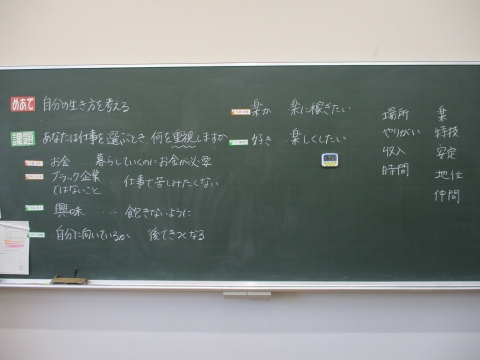 めあて 自分の生き方を考える
課題 あなたは仕事を選ぶとき、何を重視しますか
お金 暮らしていくのにお金が必要
ブラック企業ではないこと … 仕事で苦しみたくない
興味 … 飽きないように
自分に向いているか 後できつくなる
楽か 楽に稼ぎたい
好き 楽しくしたい
場所
やりがい
収入
時間
楽
特技
安定
地位
仲間